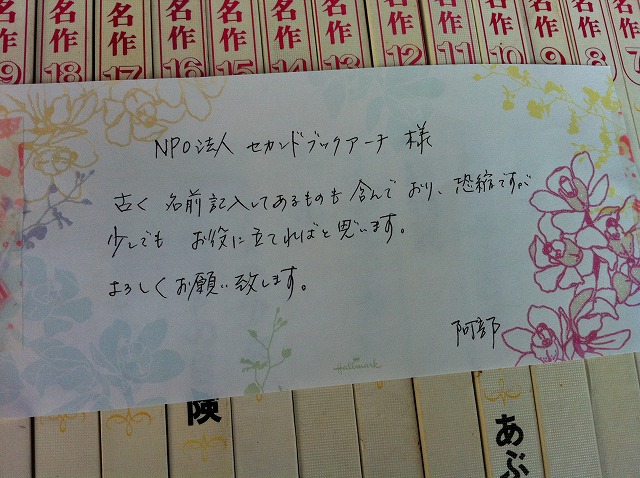 名作 名作 名作 名作 名作 名作 名作 名作 名作 名作 名作 名作
19 18 17 16 15 14 13 12 11 10 9 8 7
NPO法人 セカンドブックアーチ 様
古く 名前記入してあるものも含んでおり、恐縮ですが
少しでも お役に立てればと思います。
よろしくお願い致します。
阿部
Hallmark
険
あぶ